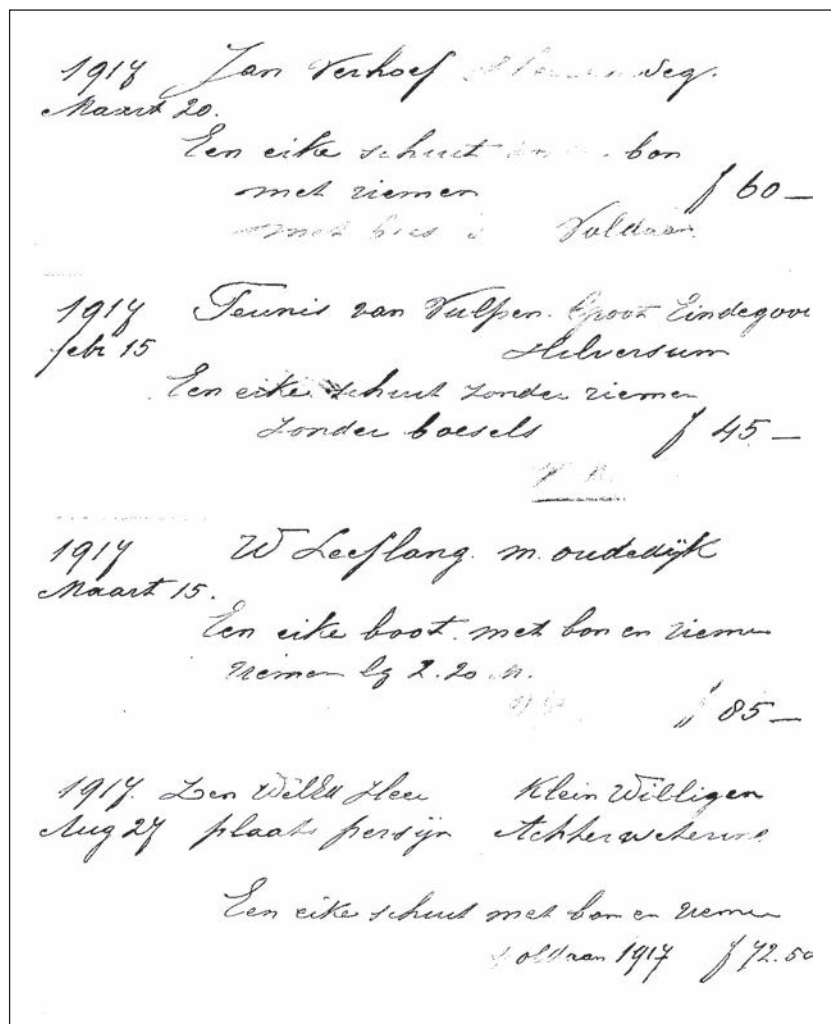 1917 Jan Verhoef
Maart 20.
Een eike schuit bon
met riemen f 60 —
met Voldaan
1917 Teunis van Vulpen. Groot Eindegooi
febr 15 Hilversum
Een eike schuit zonder riemen
zonder boesels f 45 —
1917 W Leeflang. m. oudedijk
Maart 15.
Een eike boot. met bon en riemen
riemen lg 2.20 M.
f 85 —
1917. Den WelEd Heer Klein Willigen
Aug 27 plaats persijn Achterwetering
Een eike schuit met bon en riemen
voldaan 1917 f 72.50